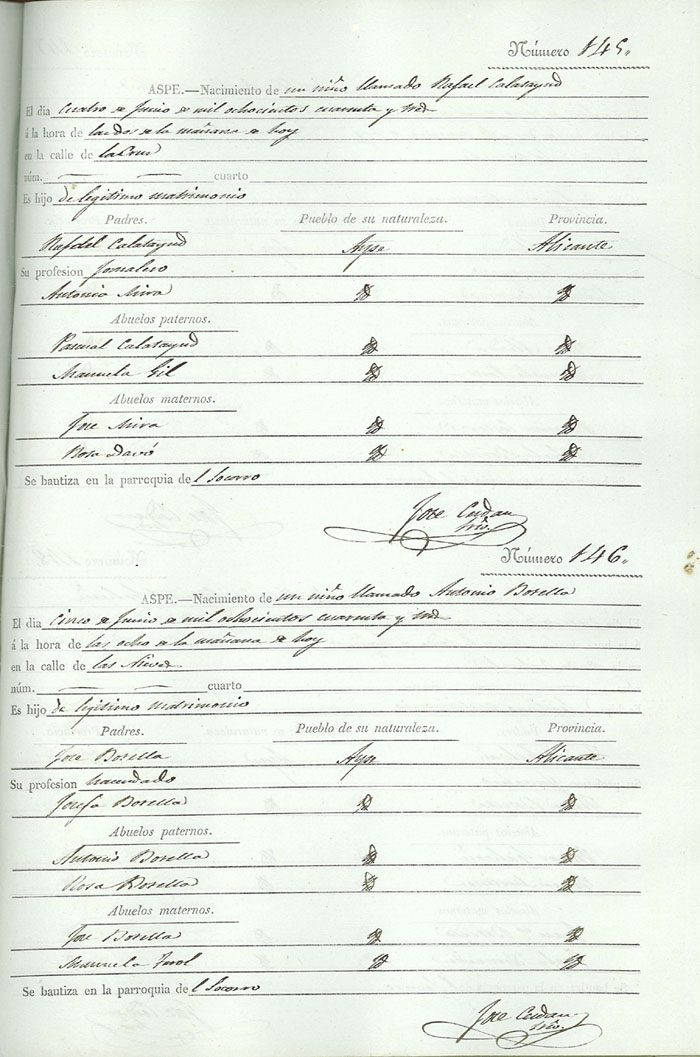 Número 145.
ASPE.—Nacimiento de un niño llamado Rafael Calatayud
El dia Cuatro de Junio de mil ochocientos cuarenta y tres
á la hora de las dos de la mañana de hoy
en la calle de la Cruz
núm. — — cuarto
Es hijo de legitimo matrimonio
Padres. Pueblo de su naturaleza. Provincia.
Rafael Calatayud Aspe Alicante
Su profesion Jornalero
Antonia Mira
Abuelos paternos.
Pascual Calatayud
Manuela Gil
Abuelos maternos.
Jose Mira
Rosa Davó
Se bautiza en la parroquia del Socorro
Jose Cerdan
Srio.
Número 146.
ASPE.—Nacimiento de un niño llamado Antonio Botella
El dia Cinco de Junio de mil ochocientos cuarenta y tres
á la hora de las ocho de la mañana de hoy
en la calle de las Nieves
núm. — — cuarto
Es hijo de legitimo matrimonio
Padres. Pueblo de su naturaleza. Provincia.
Jose Botella Aspe Alicante
Su profesion hacendado
Josefa Botella
Abuelos paternos.
Antonio Botella
Rosa Botella
Abuelos maternos.
Jose Botella
Manuela
Se bautiza en la parroquia del Socorro
Jose Cerdan
Srio.